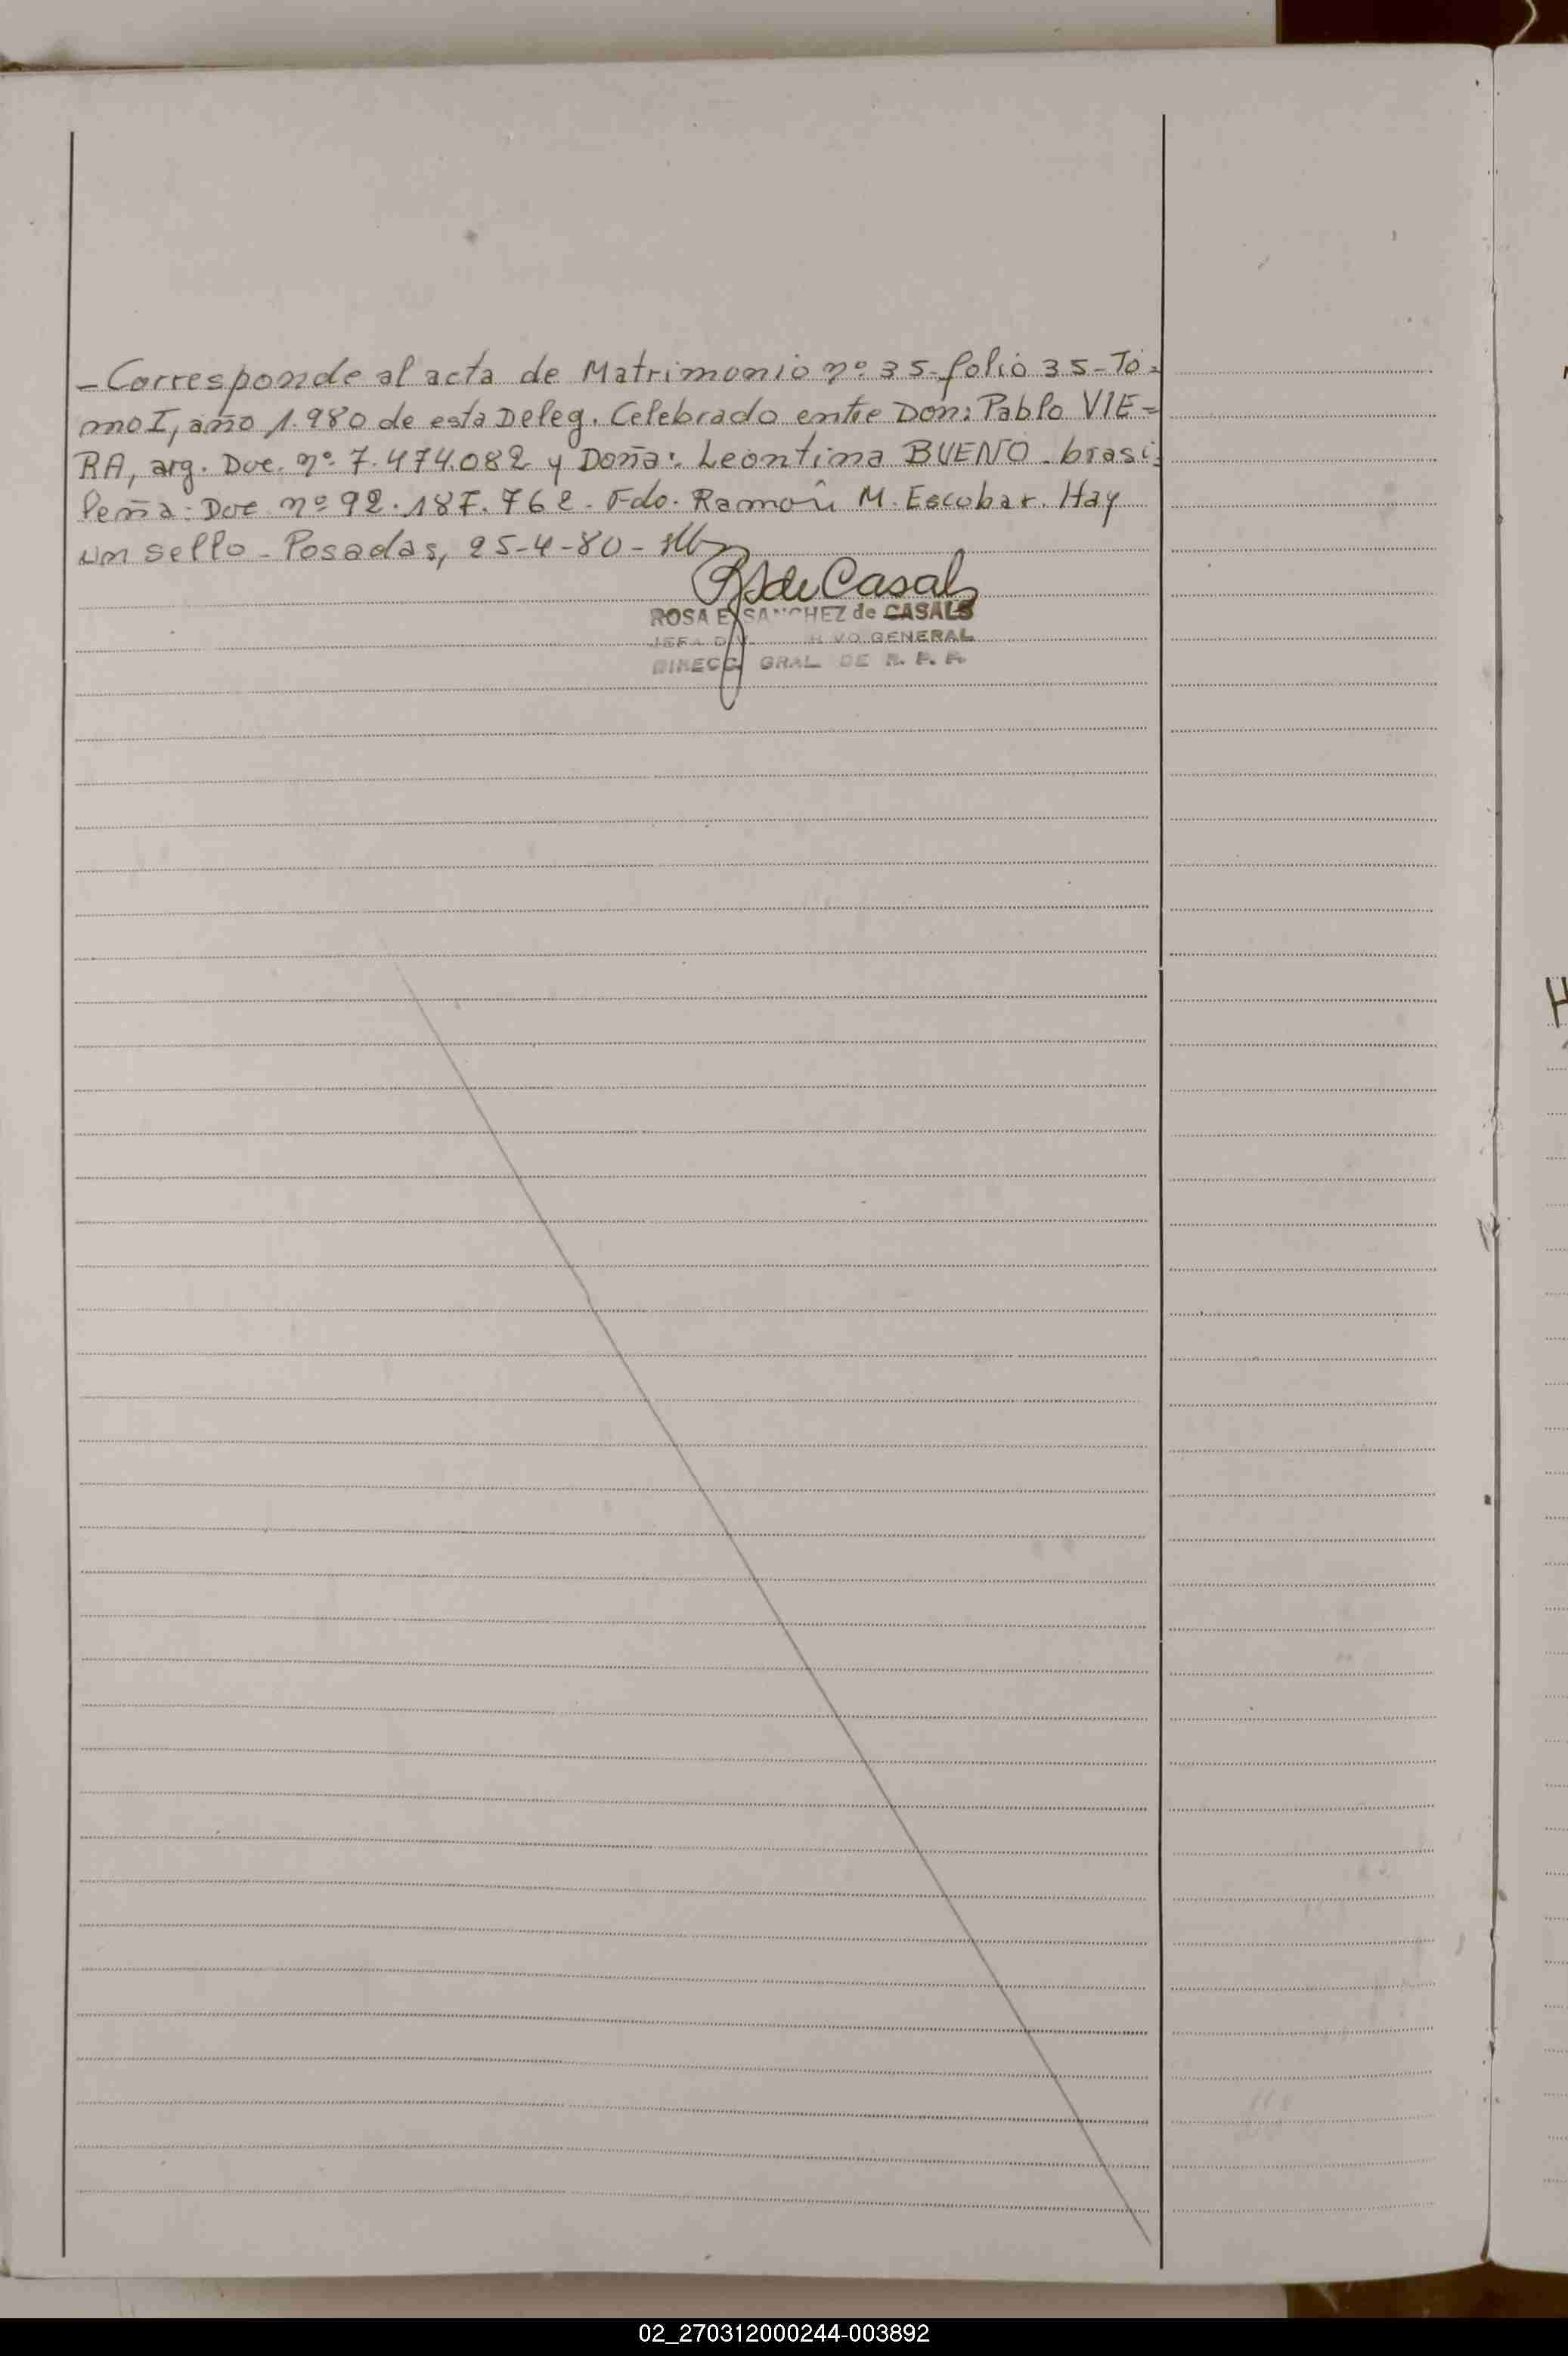 - Corresponde al acta de Matrimonio nº 35- folio 35- To=
mo I, año 1.980 de esta Deleg. Celebrado entre Don: Pablo VIE=
RA, arg. Doc. nº 7.474.082 y Doña: Leontina BUENO - brasi=
leña - Doc nº 92.187.762 - Fdo. Ramon M. Escobar. Hay
un sello - Posadas, 25-4-80 -
RS de Casals
ROSA E. SANCHEZ de CASALS
JEFA GENERAL
DIRECC. GRAL DE R. P. P.
02_270312000244-003892